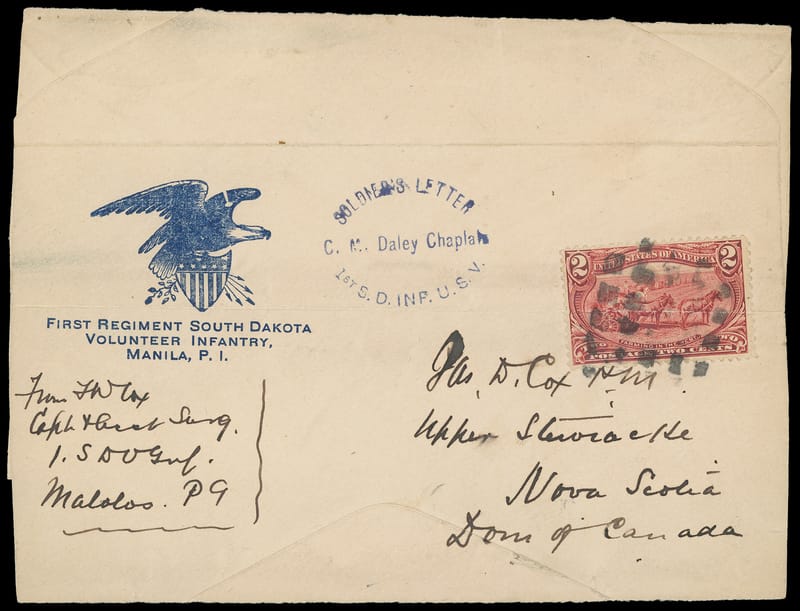 SOLDIER'S LETTER
C. M. Daley Chaplain
1ST S. D. INF. U. S. V.
FIRST REGIMENT SOUTH DAKOTA
VOLUNTEER INFANTRY,
MANILA, P. I.
2 UNITED STATES OF AMERICA 2
FARMING IN THE WEST
POSTAGE TWO CENTS
From F W Cox
Capt & Asst Surg.
1. S D V Inf.
Malolos. P I
Jas. D. Cox P.M.
Upper Stewiacke
Nova Scotia
Dom of Canada